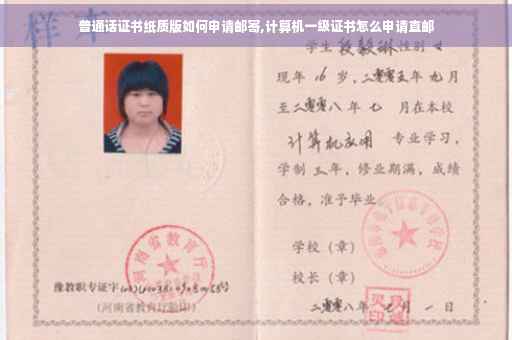 普通话证书纸质版如何申请邮寄,计算机一级证书怎么申请直邮
样本
学生段毅琳性别女
现年16岁，二零零五年九月
至二零零八年七月在本校
计算机应用专业学习，
学制三年，修业期满，成绩
合格，准予毕业
学校（章）
校长（章）
二零零八年七月一日
河南省教育厅
豫教职专证字
（河南省教育厅验印）